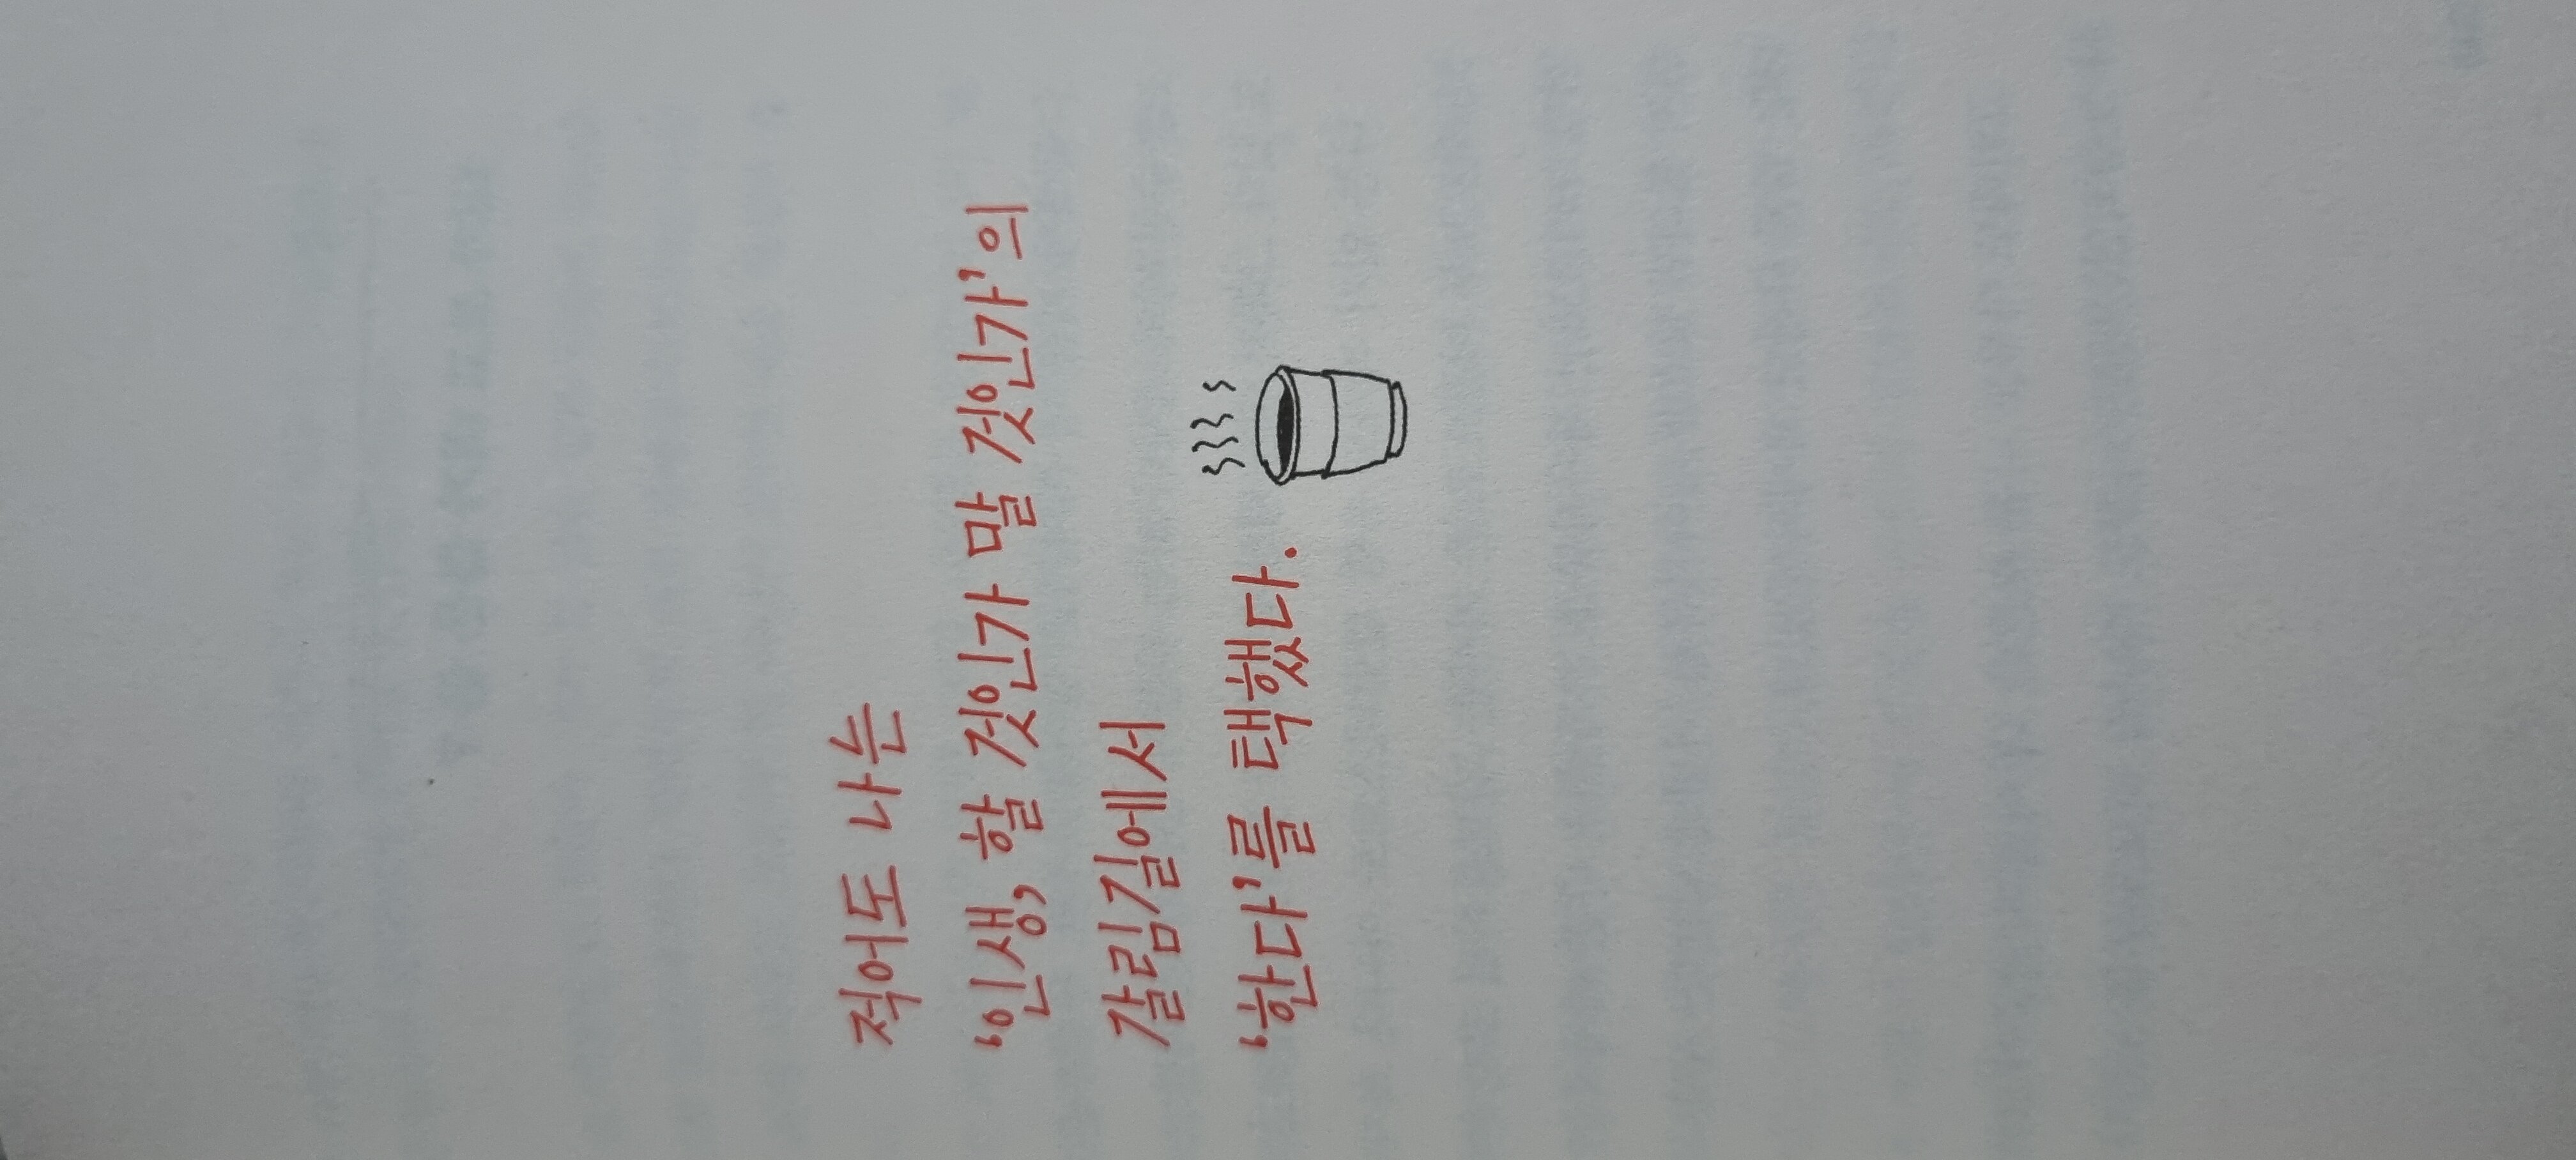 적어도 나는
'인생, 할 것인가 말 것인가'의
갈림길에서
'한다'를 택했다.